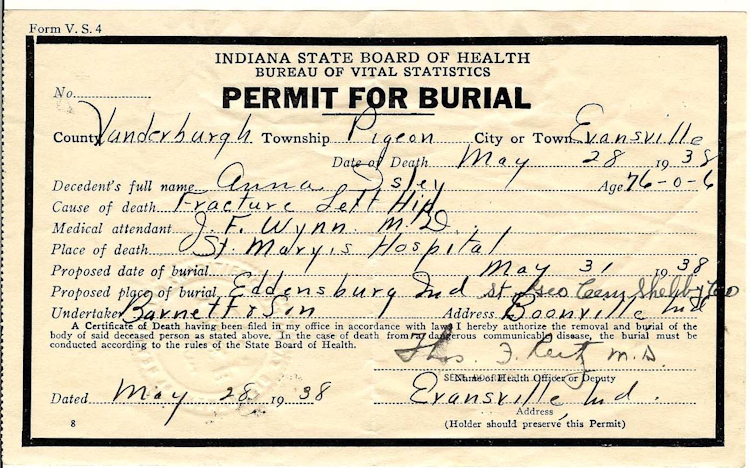 Form V. S. 4
INDIANA STATE BOARD OF HEALTH
BUREAU OF VITAL STATISTICS
No.
PERMIT FOR BURIAL
County Vanderburgh Township Pigeon City or Town Evansville
Date of Death May 28 1938
Decedent's full name Anna Isley Age 76-0-6
Cause of death Fracture Left Hip
Medical attendant J. F. Wynn M.D.
Place of death St. Mary's Hospital
Proposed date of burial May 31 1938
Proposed place of burial Eddensburg Ind St Geo Cem Shelby Co
Undertaker Barnett & Son Address Boonville Ind
A Certificate of Death having been filed in my office in accordance with law, I hereby authorize the removal and burial of the
body of said deceased person as stated above. In the case of death from dangerous communicable disease, the burial must be
conducted according to the rules of the State Board of Health.
Thos. F. M.D.
Name of Health Officer or Deputy
Dated May 28 1938 Evansville Ind.
Address
8 (Holder should preserve this Permit)